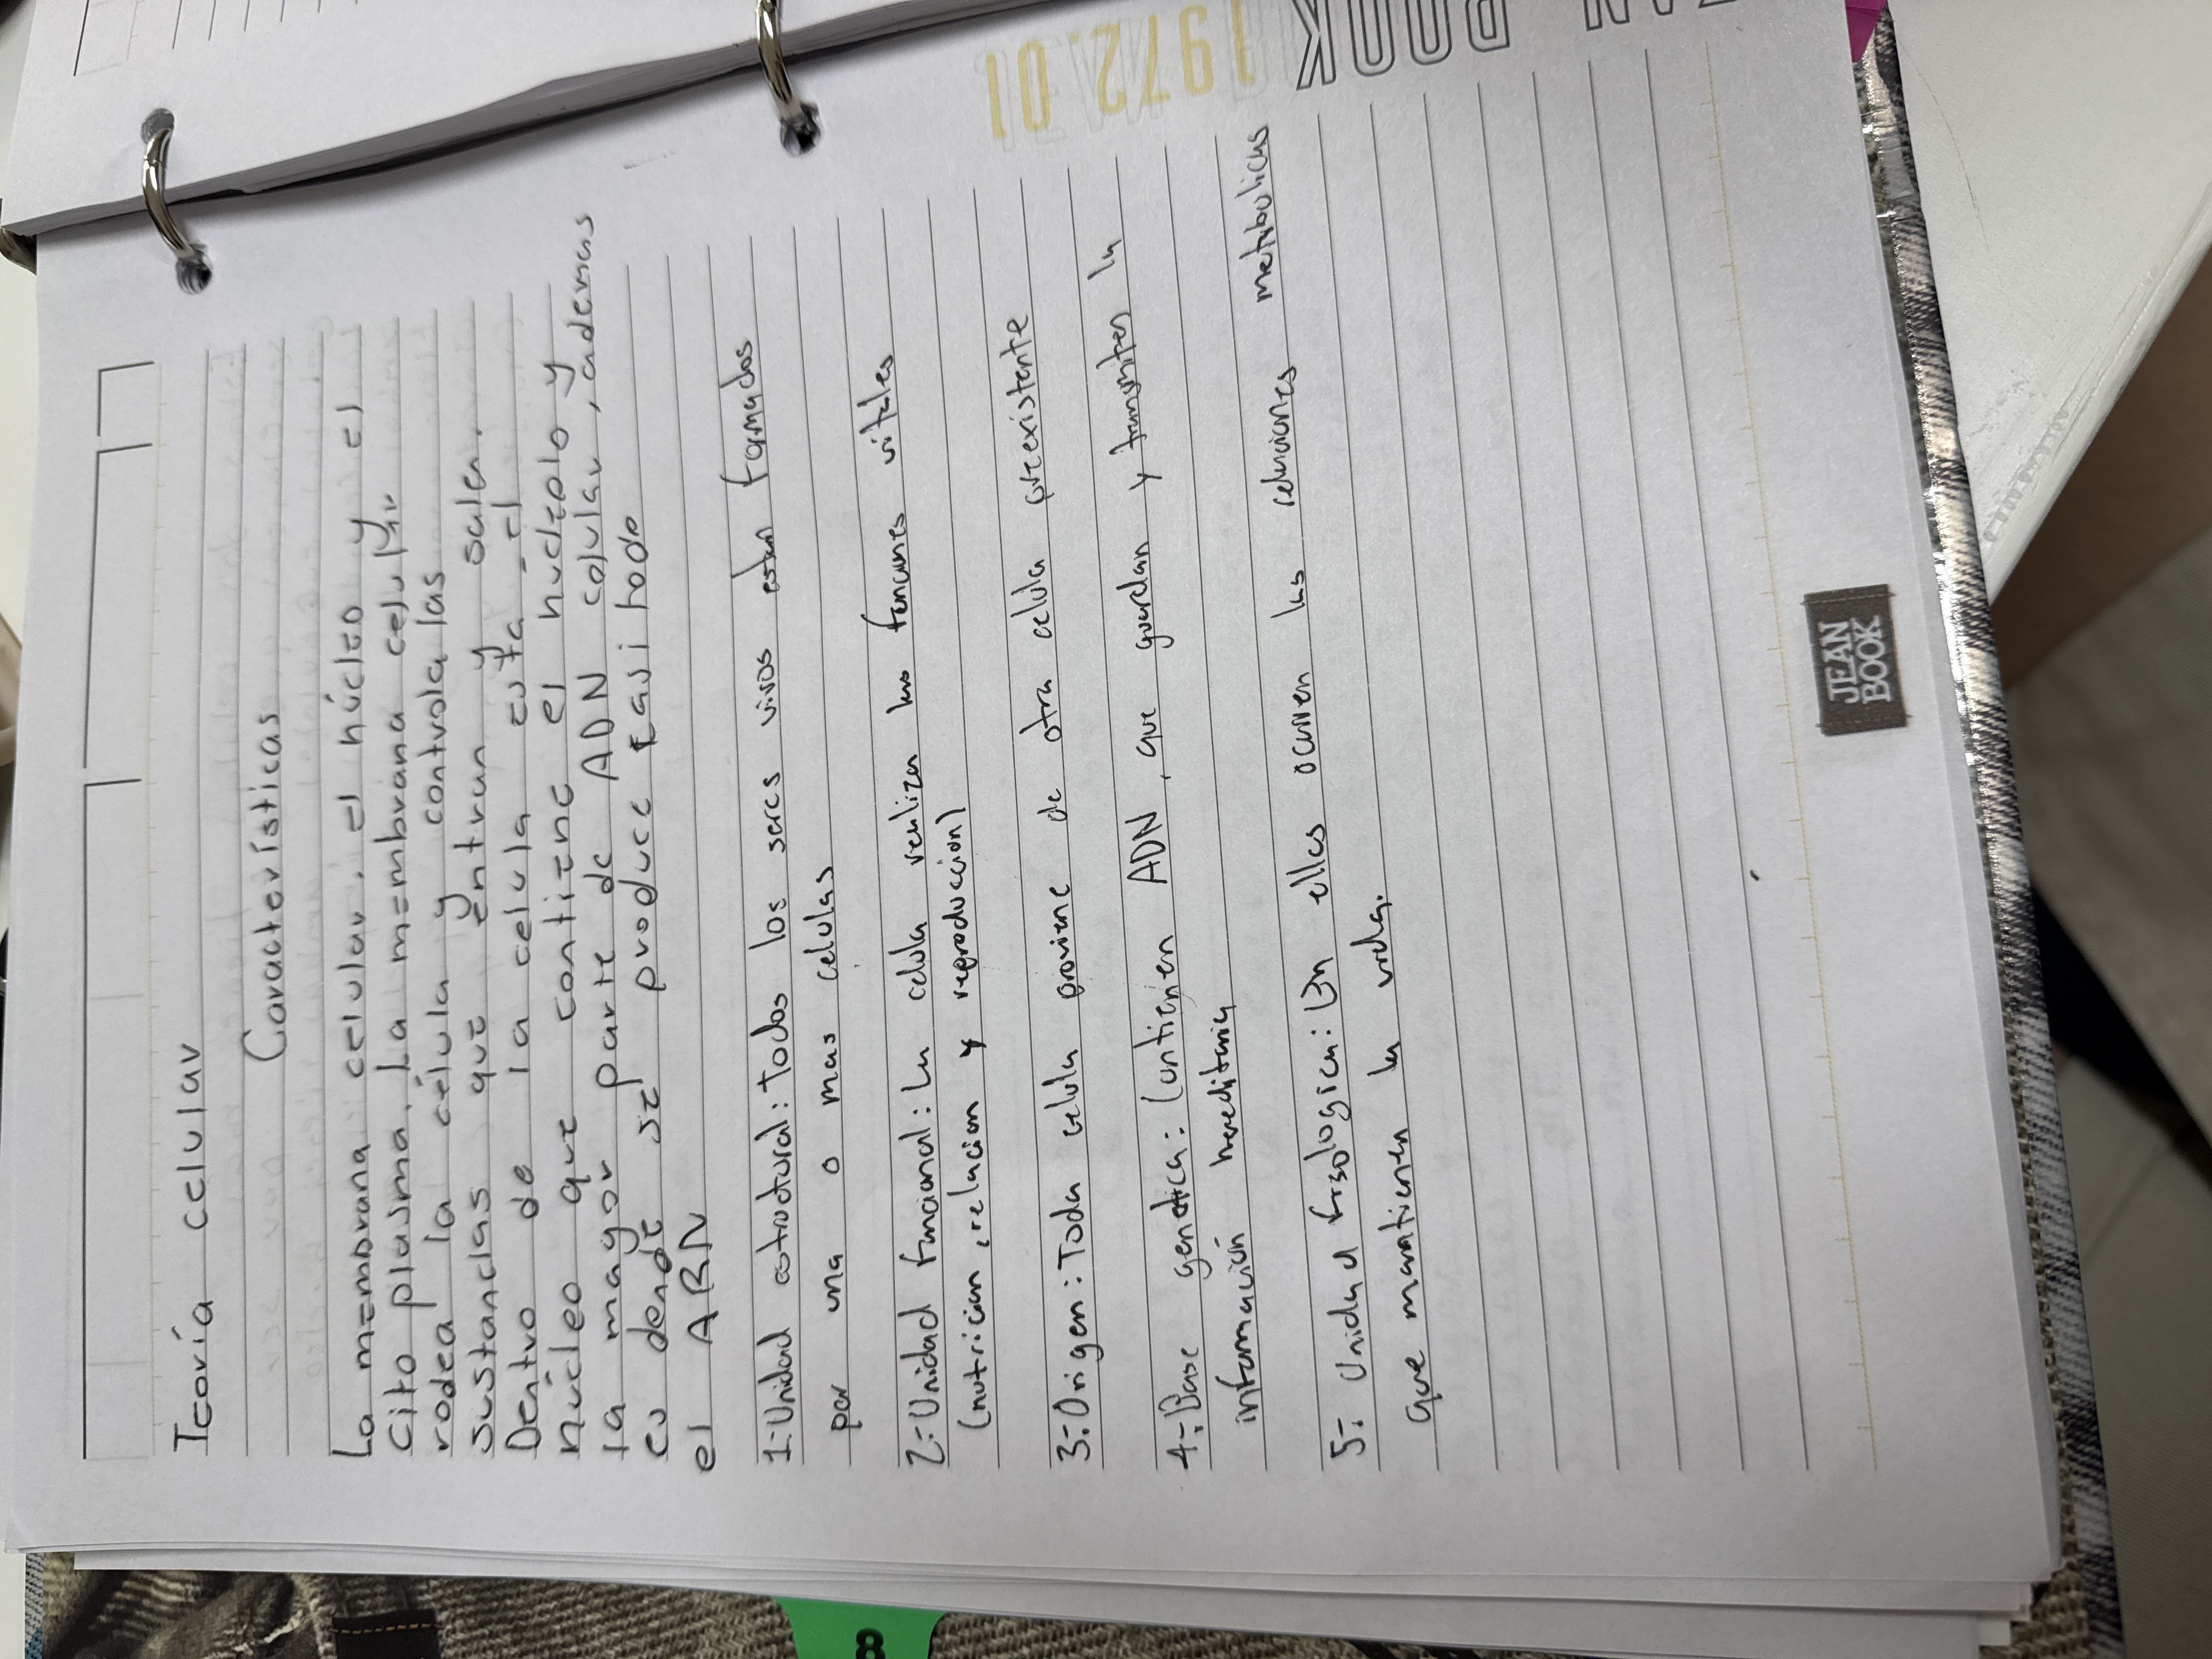 Teoría celular
Características
La membrana celular, el núcleo y el
Cito plasma, La membrana celular
rodea la célula y controla las
sustancias que entran y salen.
Dentro de la celula esta el
núcleo que contiene el nucleolo y
la mayor parte de ADN celular, ademas
es donde se produce casi todo
el ARN
1-Unidad estructural: Todos los seres vivos estan formados
por una o mas celulas
2-Unidad funcional: La celula realiza las funciones vitales
(nutricion, relacion y reproduccion)
3-Origen: Toda celula proviene de otra celula preexistente
4-Base genetica: Contienen ADN, que guardan y transmiten la
información hereditaria
5- Unidad fisologica: En ellas ocurren las relaciones metabolicas
que mantienen la vida.
JEAN
BOOK
AN BOOK 1972.01
8